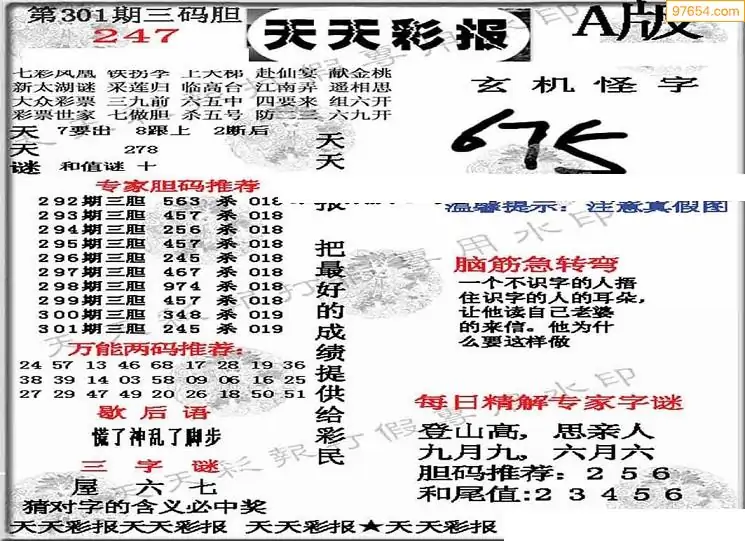 97654.com
第301期三码胆
247
天天彩报
A版
七彩凤凰 铁拐李 上天梯 赴仙宴 献金桃
新太湖谜 采莲归 临高台 江南弄 遥相思
大众彩票 三九前 六五中 四要来 组六开
彩票世家 七做胆 杀五号 防二三 六九开
天 7要出 8跟上 2断后
天 278
谜 和值谜 十
玄机怪字
675
专家胆码推荐
292期三胆 563 杀 018
293期三胆 457 杀 018
294期三胆 256 杀 018
295期三胆 457 杀 018
296期三胆 245 杀 018
297期三胆 467 杀 018
298期三胆 974 杀 018
299期三胆 457 杀 018
300期三胆 348 杀 019
301期三胆 245 杀 019
万能两码推荐:
24 57 13 46 68 17 28 19 36
38 39 14 03 58 09 06 16 25
27 29 47 49 20 26 18 50 51
歇后语
慌了神乱了脚步
三字谜
屋 六 七
猜对字的含义必中奖
天天报 把最好的成绩提供给彩民
温馨提示: 注意真假图
脑筋急转弯
一个不识字的人捂
住识字的人的耳朵,
让他读自己老婆
的来信。他为什
么要这样做
每日精解专家字谜
登山高,思亲人
九月九,六月六
胆码推荐:256
和尾值:23456
天天彩报天天彩报 天天彩报★天天彩报